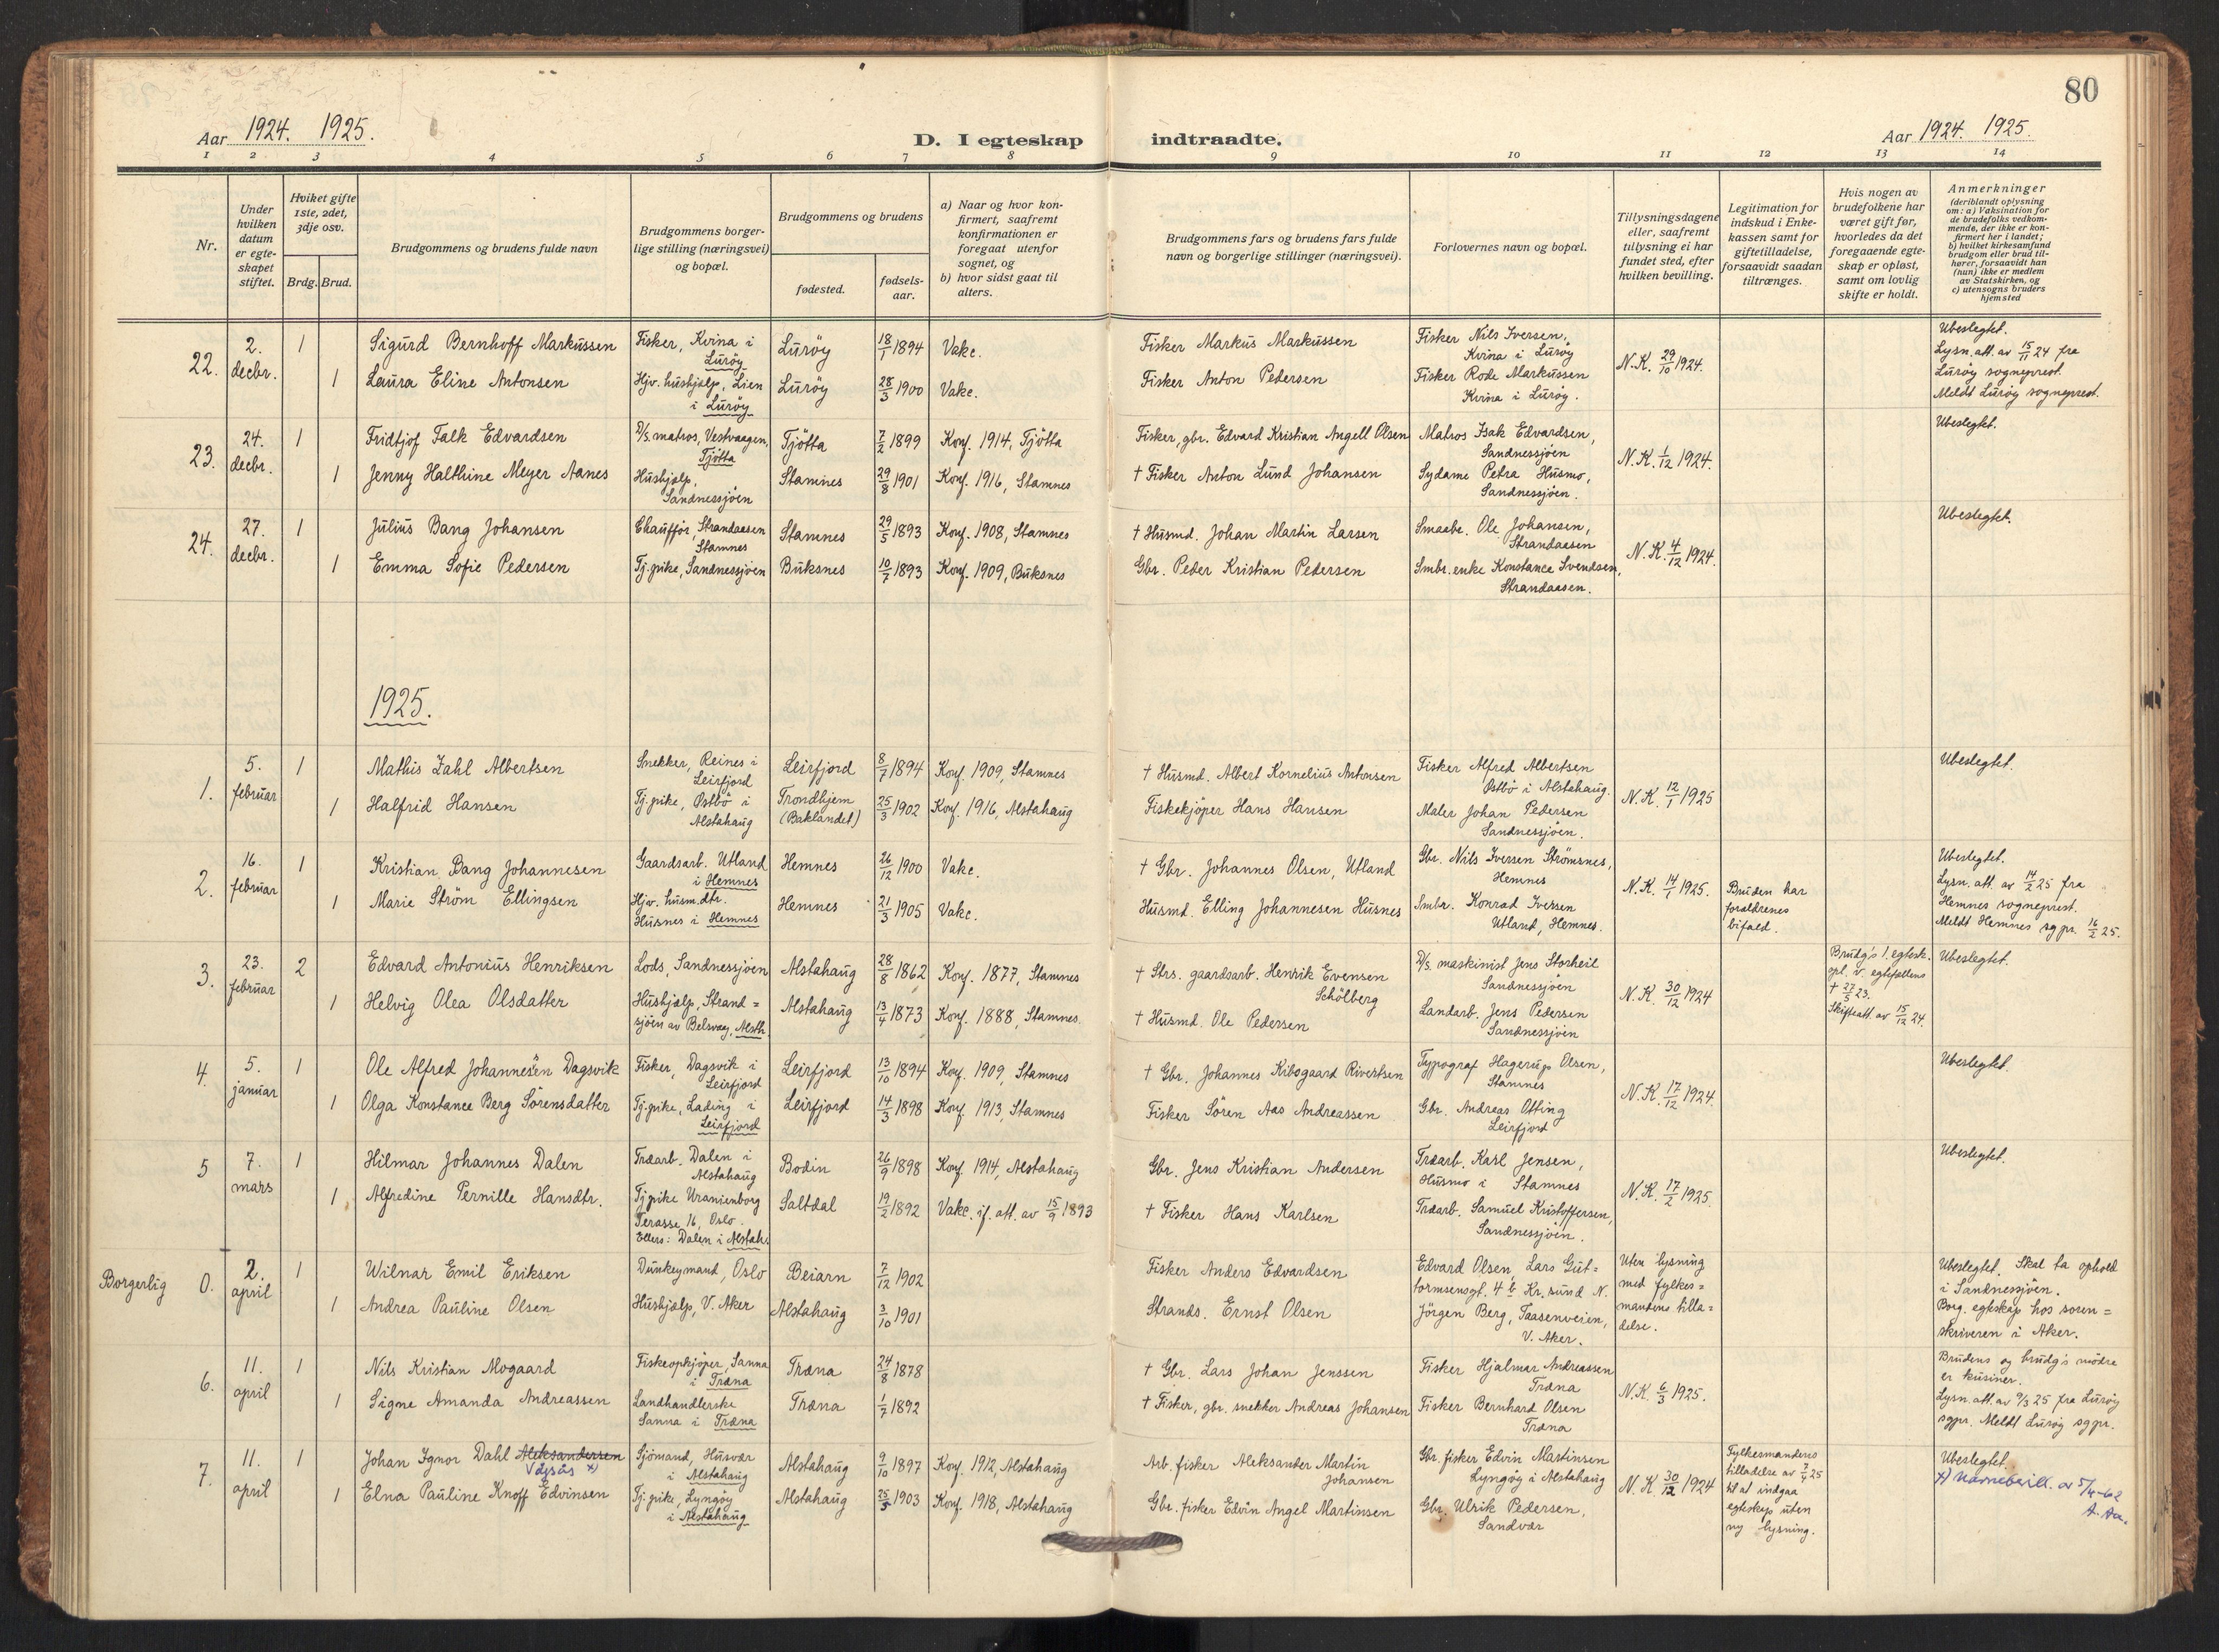 80
Aar 1924. 1925.
D. I egteskap indtraadte.
Aar 1924. 1925.
1 2 3 4 5 6 7 8 9 10 11 12 13 14
Nr.
Under hvilken datum er egteskapet stiftet.
Hvilket gifte 1ste, 2det, 3dje osv.
Brdg. Brud.
Brudgommens og brudens fulde navn
Brudgommens borgerlige stilling (næringsvei) og bopæl.
Brudgommens og brudens
fødested.
fødselsaar.
a) Naar og hvor konfirmert, saafremt konfirmationen er foregaat utenfor sognet, og
b) hvor sidst gaat til alters.
Brudgommens fars og brudens fars fulde navn og borgerlige stillinger (næringsvei).
Forlovernes navn og bopæl.
Tillysningsdagene eller, saafremt tillysning ei har fundet sted, efter hvilken bevilling.
Legitimation for indskud i Enkekassen samt for giftetilladelse, forsaavidt saadan tiltrænges.
Hvis nogen av brudefolkene har været gift før, hvorledes da det foregaaende egteskap er opløst, samt om lovlig skifte er holdt.
Anmerkninger
(deriblandt oplysning om: a) Vaksination for de brudefolks vedkommende, der ikke er konfirmert her i landet;
b) hvilket kirkesamfund brudgom eller brud tilhører, forsaavidt han (hun) ikke er medlem av Statskirken, og
c) utensogns bruders hjemsted
22. 2. decbr.
1 Sigurd Bernhoff Markussen Fisker, Kvina i Lurøy Lurøy 18/1 1894 Vakc. Fisker Markus Markussen Fisker Nils Iversen, Kvina i Lurøy
1 Laura Eline Antonsen Hjv. hushjælp, Lien i Lurøy Lurøy 28/3 1900 Vakc. Fisker Anton Pedersen Fisker Rode Markussen Kvina i Lurøy.
N.K. 29/10 1924.
Ubeslegtet.
Lysn. att. av 15/11 24 fra
Lurøy sogneprest.
Meldt Lurøy sogneprest.
23. 24. decbr.
1 Fridtjof Falk Edvardsen D/s. matros, Vestvaagen, Tjøtta Tjøtta 7/2 1899 Konf. 1914, Tjøtta Fisker, gbr. Edvard Kristian Angell Olsen Matros Isak Edvardsen, Sandnessjøen
1 Jenny Halthine Meyer Aanes Hushjælp, Sandnessjøen Stamnes 29/8 1901 Konf. 1916, Stamnes † Fisker Anton Lund Johansen Sydame Petra Husmo, Sandnessjøen.
N.K. 1/12 1924.
Ubeslegtet.
24. 27. decbr.
1 Julius Bang Johansen Chauffør, Strandaasen Stamnes Stamnes 29/5 1893 Konf. 1908, Stamnes † Husmd. Johan Martin Larsen Smaabr. Ole Johansen, Strandaasen
1 Emma Sofie Pedersen Tj.pike, Sandnessjøen Buksnes 10/7 1893 Konf. 1909, Buksnes Gbr. Peder Kristian Pedersen Smbr. enke Konstance Svendsen, Strandaasen.
N.K. 4/12 1924.
Ubeslegtet.
1925.
1. 5. februar
1 Mathis Zahl Albertsen Snekker, Reines i Leirfjord Leirfjord 8/7 1894 Konf. 1909, Stamnes † Husmd. Albert Kornelius Antonsen Fisker Alfred Albertsen Østbø i Alstahaug.
1 Halfrid Hansen Tj.pike, Østbø i Alstahaug Trondhjem (Baklandet) 25/3 1902 Konf. 1916, Alstahaug Fiskekjøper Hans Hansen Maler Johan Pedersen Sandnessjøen.
N.K. 12/1 1925
Ubeslegtet.
2. 16. februar
1 Kristian Bang Johannesen Gaardsarb. Utland i Hemnes Hemnes 26/12 1900 Vakc. † Gbr. Johannes Olsen, Utland Gbr. Nils Iversen Strømsnes, Hemnes
1 Marie Strøm Ellingsen Hjv. husm.dtr. Husnes i Hemnes Hemnes 21/3 1905 Vakc. Husmd. Elling Johannesen Husnes Smbr. Konrad Iversen Utland, Hemnes.
N.K. 14/1 1925. Bruden har forældrenes bifald.
Ubeslegtet.
Lysn. att. av 14/2 25 fra
Hemnes sogneprest.
Meldt Hemnes sgpr. 16/2 25.
3. 23. februar
2 Edvard Antonius Henriksen Lods, Sandnessjøen Alstahaug 28/8 1862 Konf. 1877, Stamnes † Strs. gaardsarb. Henrik Evensen Schölberg D/s. maskinist Jens Storheil Sandnessjøen
1 Helvig Olea Olsdatter Hushjælp, Strandsjøen av Belsvaag, Alsth. Alstahaug 13/4 1873 Konf. 1888, Stamnes. † Husmd. Ole Pedersen Landarb. Jens Pedersen Sandnessjøen
N.K. 30/12 1924
Brudg's 1. egtesk. opl. v. egtefællens † 27/5 23. Skifteatt. av 15/12 24.
Ubeslegtet.
4. 5. januar
1 Ole Alfred Johannesen Dagsvik Fisker, Dagsvik i Leirfjord Leirfjord 13/10 1894 Konf. 1909, Stamnes † Gbr. Johannes Kibsgaard Rivertsen Typograf Hagerup Olsen, Stamnes
1 Olga Konstance Berg Sørensdatter Tj.pike, Lading i Leirfjord Leirfjord 14/3 1898 Konf. 1913, Stamnes Fisker Søren Aas Andreassen Gbr. Andreas Otting Leirfjord
N.K. 17/12 1924.
Ubeslegtet.
5 7. mars
1 Hilmar Johannes Dalen Træarb. Dalen i Alstahaug Bodin 26/9 1898 Konf. 1914, Alstahaug Gbr. Jens Kristian Andersen Træarb. Karl Jensen, Husmo i Stamnes
1 Alfredine Pernille Hansdtr. Tj.pike Uranienborg Terasse 16, Oslo. Ellers: Dalen i Alstah. Saltdal 19/2 1892 Vakc. if. att. av 15/9 1893 † Fisker Hans Karlsen Træarb. Samuel Kristoffersen, Sandnessjøen.
N.K. 17/2 1925.
Ubeslegtet.
Borgerlig 0. 2. april
1 Wilnar Emil Eriksen Dunkeymand, Oslo Beiarn 7/12 1902 Fisker Anders Edvardsen Edvard Olsen, Lars Guttormsensgt. 4 b Kr.sund N.
1 Andrea Pauline Olsen Hushjælp, V. Aker Alstahaug 3/10 1901 Strands. Ernst Olsen Jørgen Berg, Taasenveien, V. Aker.
Uten lysning med fylkesmandens tilladelse.
Ubeslegtet. Skal ta ophold
i Sandnessjøen.
Borg. egteskap hos sorenskriveren i Aker.
6. 11. april
1 Nils Kristian Mogaard Fiskeopkjøper, Sanna i Træna Træna 24/8 1878 † Gbr. Lars Johan Jenssen Fisker Hjalmar Andreassen Træna
1 Signe Amanda Andreassen Landhandlerske Sanna i Træna Træna 1/7 1892 † Fisker, gbr. snekker Andreas Johansen Fisker Bernhard Olsen Træna
N.K. 6/3 1925.
Brudens og brudg's mødre
er kusiner.
Lysn. att. av 9/3 25 fra Lurøy
sgpr. Meldt Lurøy sgpr.
7. 11. april
1 Johan Ignor Dahl Aleksandersen Vågsås x) Sjømand, Husvær i Alstahaug Alstahaug 9/10 1897 Konf. 1912, Alstahaug Arb. fisker Aleksander Martin Johansen Gbr. fisker Edvin Martinsen Lyngøy i Alstahaug
1 Elna Pauline Knoff Edvinsen Tj.pike, Lyngøy i Alstahaug Alstahaug 25/5 1903 Konf. 1918, Alstahaug Gbr. fisker Edvin Angel Martinsen Gbr. Ulrik Pedersen, Sandvær
N.K. 30/12 1924 Fylkesmandens tilladelse av 7/4 25 til at indgaa egteskap uten ny lysning.
Ubeslegtet.
x) Navnebevill. av 5/4-62